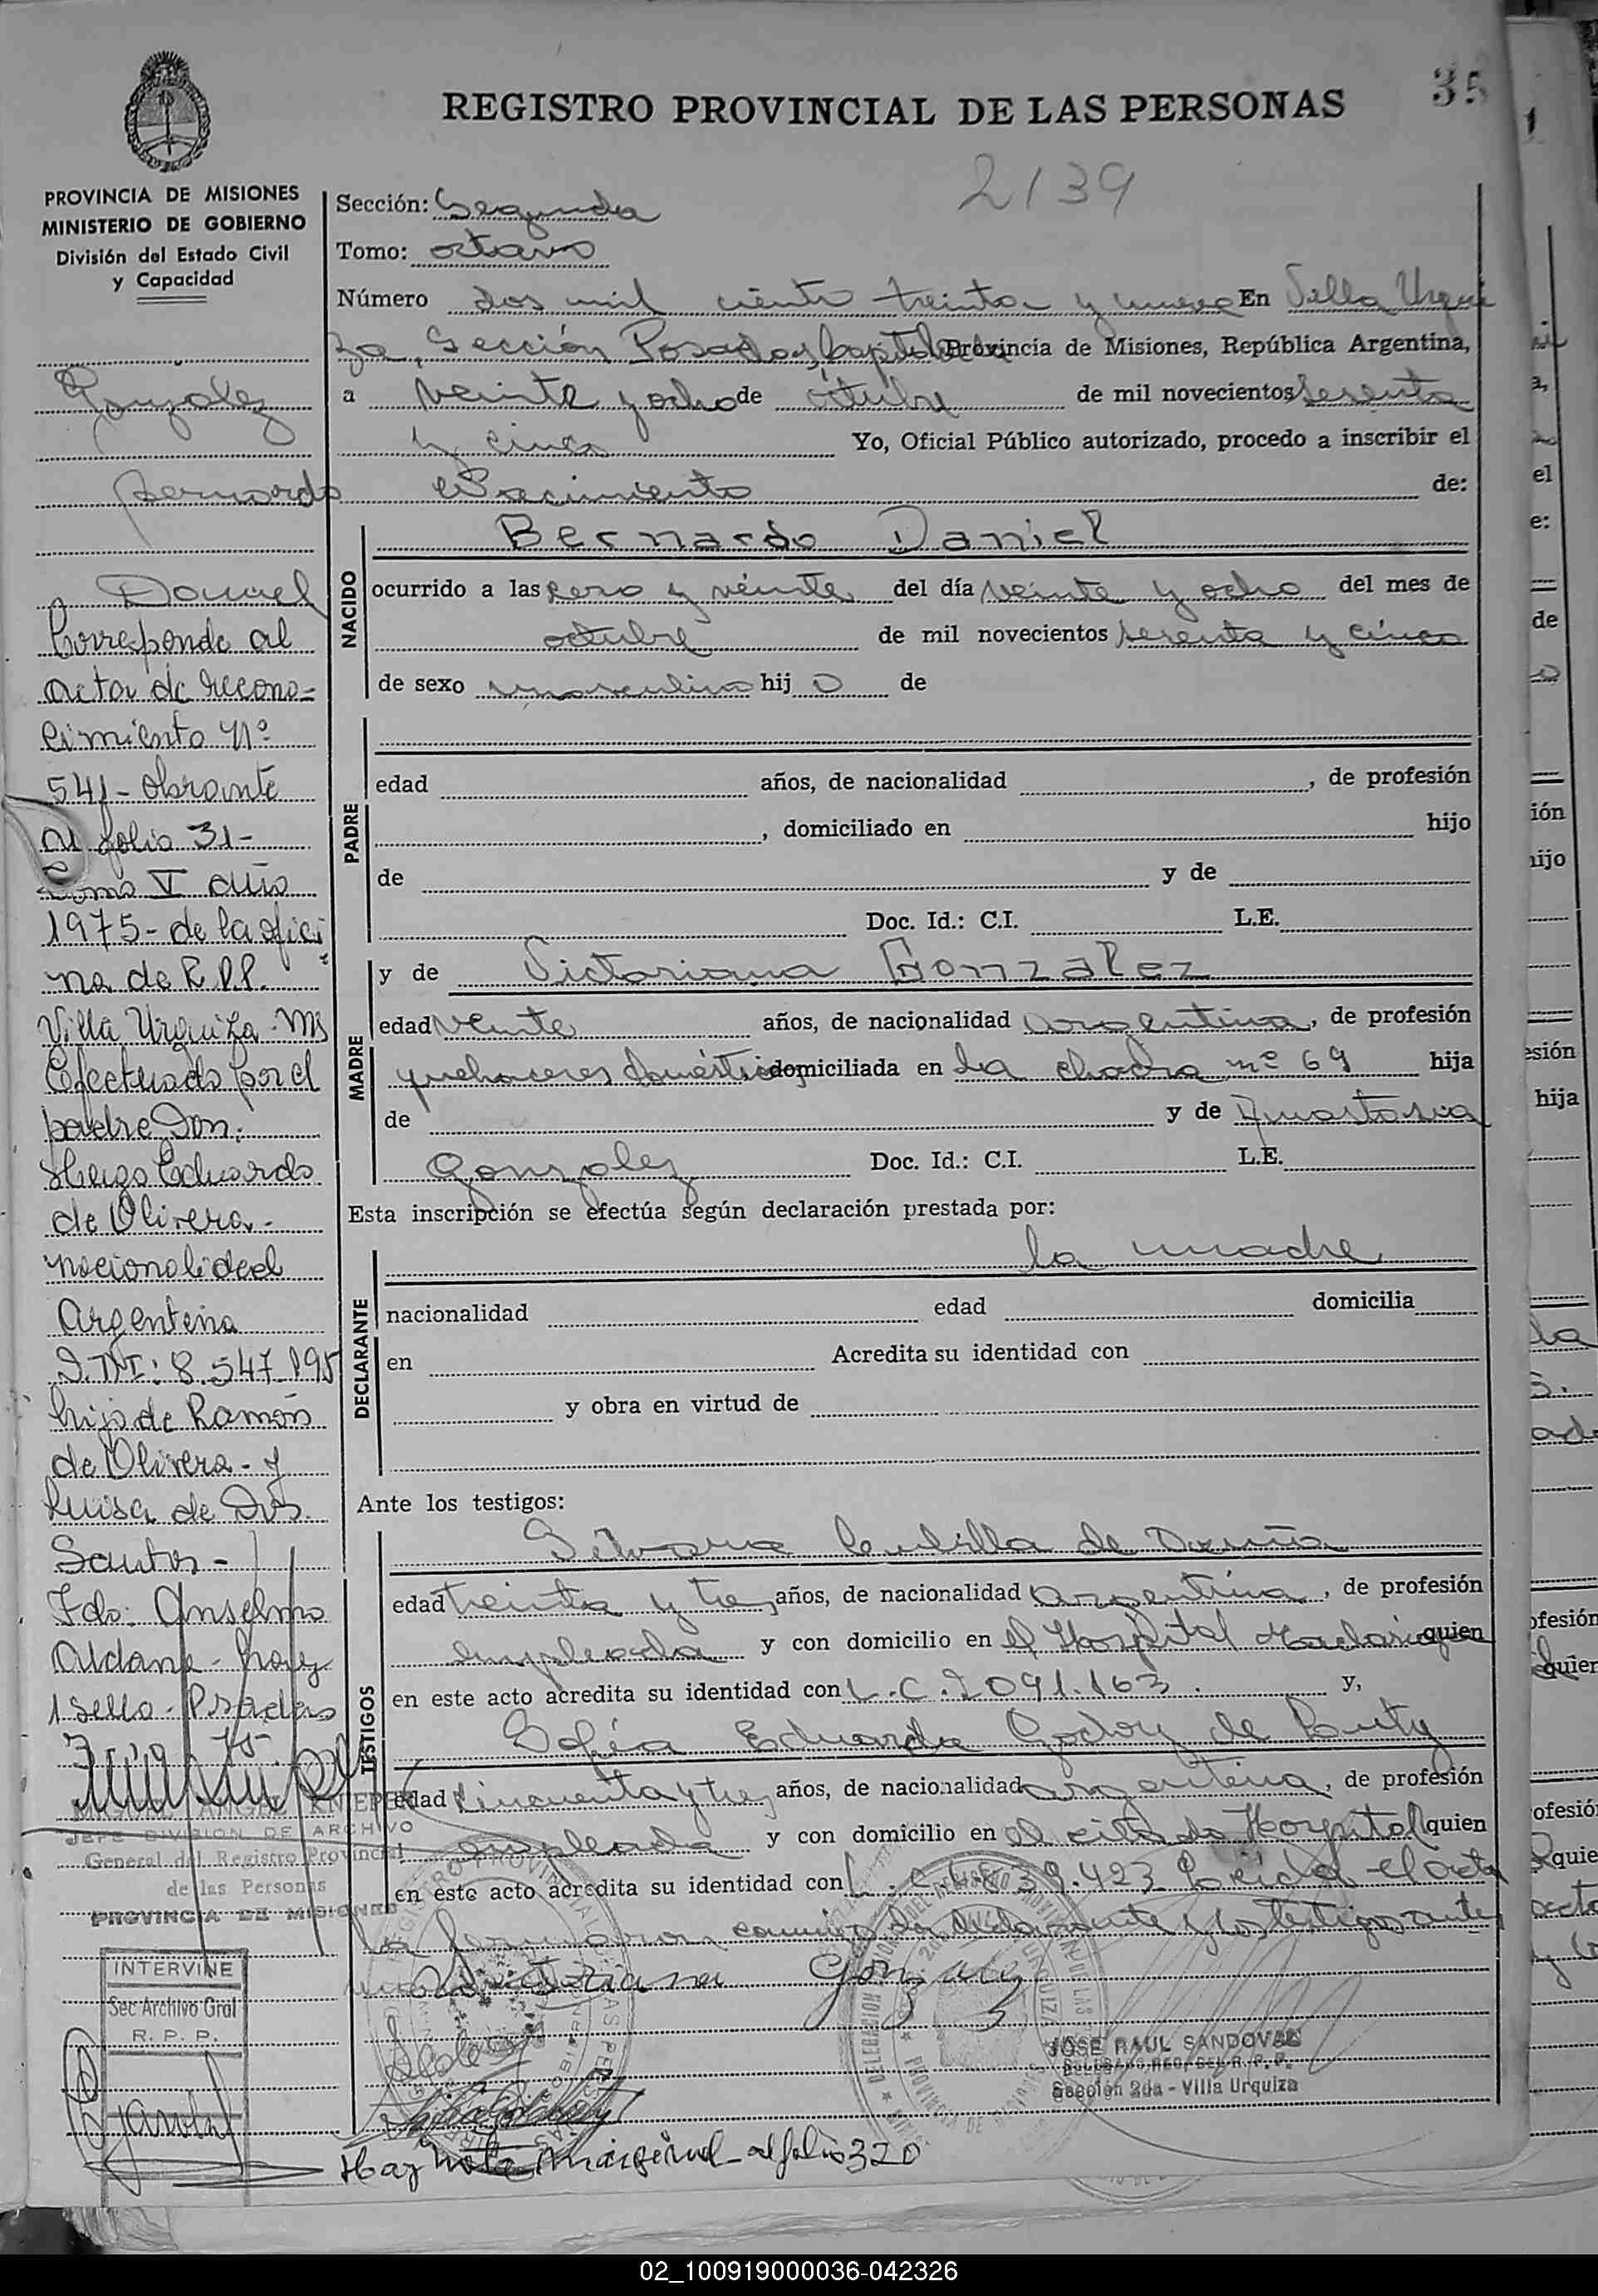 35
REGISTRO PROVINCIAL DE LAS PERSONAS
2139
PROVINCIA DE MISIONES
MINISTERIO DE GOBIERNO
División del Estado Civil
y Capacidad
Gonzalez
Bernardo
Daniel
Corresponde al
acta de recono-
cimiento Nº
541- obrante
al folio 31-
Tomo V año
1975- de la ofici
na de R.P.P.
Villa Urquiza - Ms
Efectuado por el
padre Don:
Hugo Eduardo
de Olivera-
nacionalidad
Argentina
D.N.I: 8.547.895
hijo de Ramón
de Olivera- y
Luisa de Dos
Santos-
Fdo: Anselmo
Aldana- hay
1 sello- Posadas
75-
MIGUEL ANGEL KNIEPER
JEFE DIVISION DE ARCHIVO
General del Registro Provincial
de las Personas
PROVINCIA DE MISIONES
INTERVINE
Sec Archivo Gral
R. P. P.
Sección: Segunda
Tomo: octavo
Número dos mil ciento treinta y nueve En Villa Urqui
za, Sección Posadas, Capital Provincia de Misiones, República Argentina,
a veinte y ocho de octubre de mil novecientos sesenta
y cinco Yo, Oficial Público autorizado, procedo a inscribir el
Nacimiento de:
NACIDO
Bernardo Daniel
ocurrido a las cero y veinte del día veinte y ocho del mes de
octubre de mil novecientos sesenta y cinco
de sexo masculino hijo de
PADRE
edad años, de nacionalidad , de profesión
, domiciliado en hijo
de y de
Doc. Id.: C.I. L.E.
MADRE
y de Victoriana Gonzalez
edad veinte años, de nacionalidad argentina, de profesión
quehaceres domésticos domiciliada en La chacra nº 69 hija
de y de Anastasia
Gonzalez Doc. Id.: C.I. L.E.
Esta inscripción se efectúa según declaración prestada por:
la madre
DECLARANTE
nacionalidad edad domicilia
en Acredita su identidad con
y obra en virtud de
Ante los testigos:
TESTIGOS
Silvana de
edad treinta y tres años, de nacionalidad argentina, de profesión
empleada y con domicilio en el Hospital Madariaga quien
en este acto acredita su identidad con L.C. 2091.163. y,
Sofía Eduarda Godoy de
edad cincuenta y tres años, de nacionalidad argentina, de profesión
empleada y con domicilio en el citado Hospital quien
en este acto acredita su identidad con L.C. 39.423 Leída el acta
la firmaron conmigo la declarante y los testigos ante
Victoriana Gonzalez
JOSE RAUL SANDOVAL
DELEGADO REG. DEL R. P. P.
Sección 2da - Villa Urquiza
Hay Nota Marginal - al folio 320
02_100919000036-042326